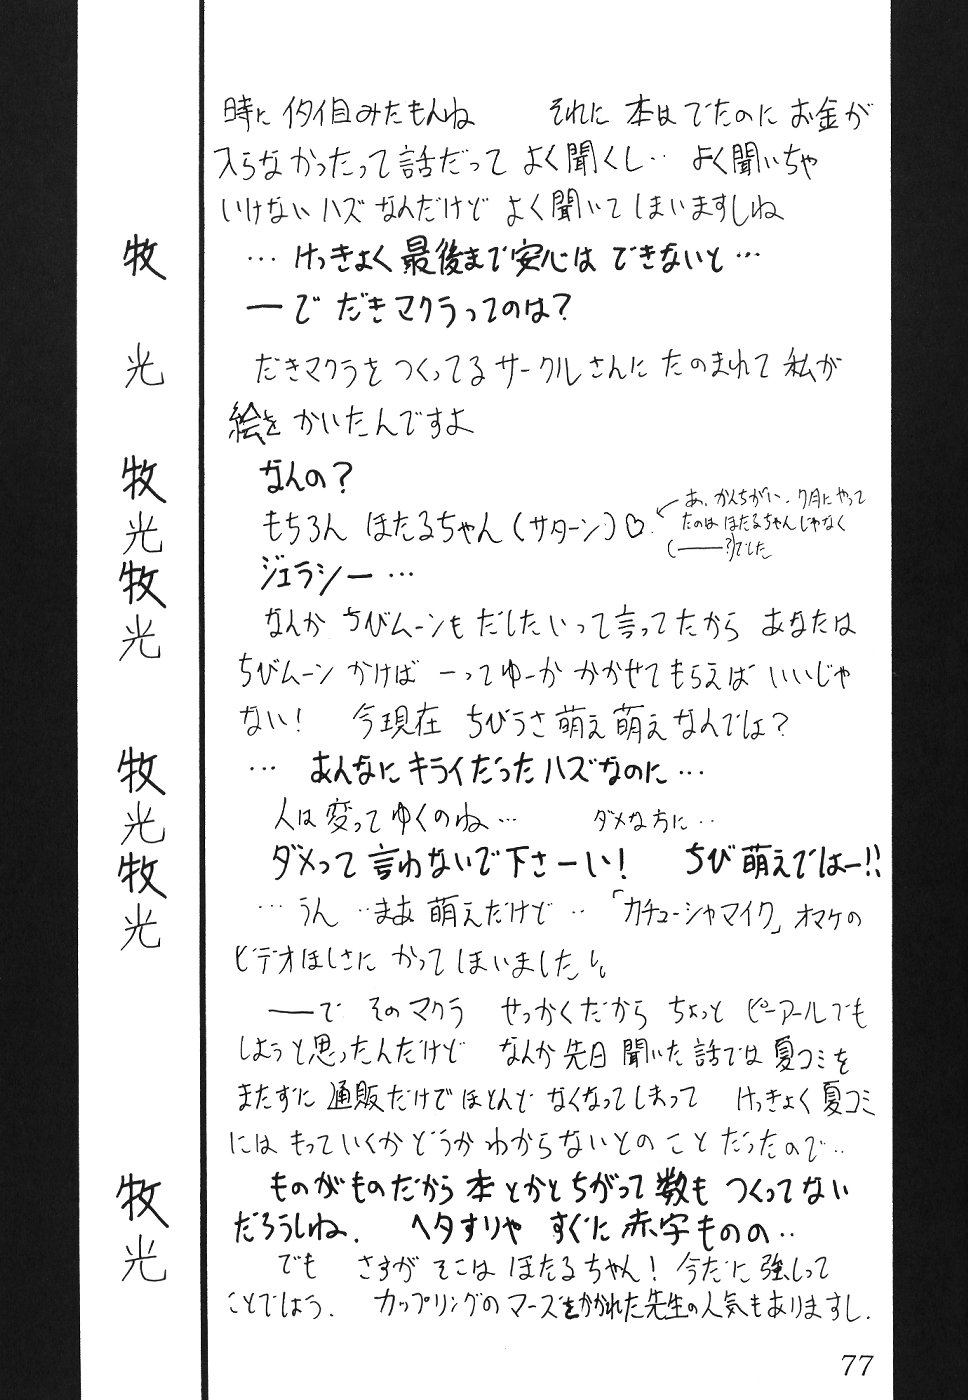 時に イタイ目みたもんね　それに 本は でたのに お金が
入らなかったって話だって よく聞くし‥ よく聞いちゃ
いけないハズなんだけど よく聞いてしまいますしね
牧 …けっきょく最後まで安心は できないと…
―で だきマクラってのは?
光 だきマクラを つくってる サークルさんに たのまれて 私が
絵を かいたんですよ
牧 なんの?
光 もちろん ほたるちゃん(サターン)♡
← あ、かんちがい、7月にやって
たのは ほたるちゃんじゃなく
(――?)でした
牧 ジェラシー…
光 なんか ちびムーンも だしたいって言ってたから あなたは
ちびムーン かけば ーってゆーか かかせてもらえば いいじゃ
ない! 今現在 ちびうさ萌え萌えなんでは?
牧 … あんなに キライだったハズなのに…
光 人は変ってゆくのね… ダメな方に‥
牧 ダメって言わないで下さーい! ちび萌えではー!!
光 …うん ‥まあ 萌えだけど‥ 「カチューシャマイク」オマケの
ビデオほしさに かってしまいました
――で そのマクラ せっかくだから ちょっと ピーアールでも
しようと思ったんだけど なんか先日 聞いた話では 夏コミを
またずに 通販だけで ほとんど なくなってしまって けっきょく夏コミ
には もっていくか どうか わからないとの ことだったので‥
牧 ものがものだから 本とかとちがって 数も つくってない
だろうしね. ヘタすりゃ すぐに 赤字ものの‥
光 でも さすが そこは ほたるちゃん! 今だに 強しって
ことでしょう. カップリングの マーズをかかれた先生の人気もありますし.
77